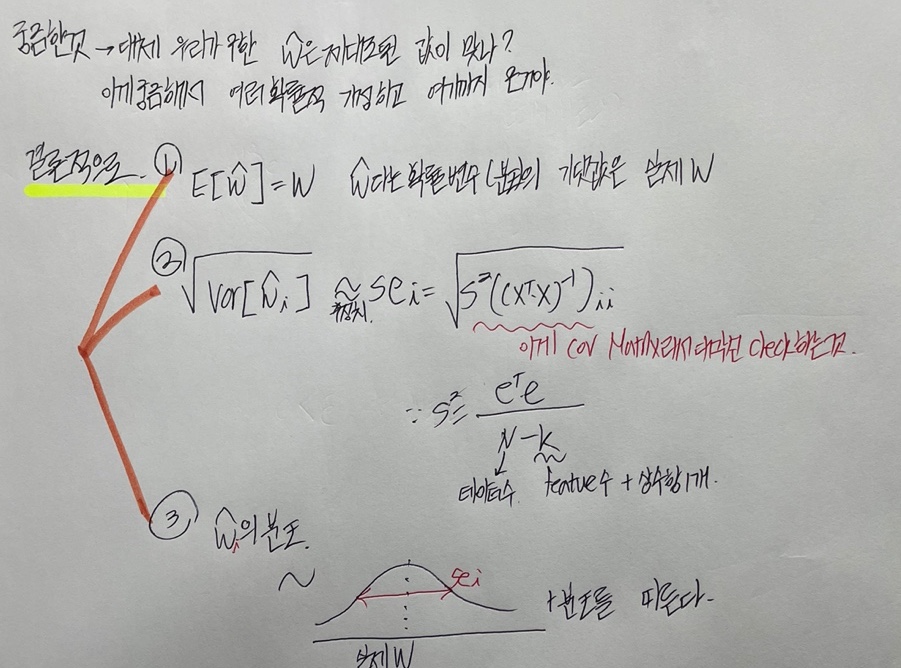 궁금한것 → 대체 우리가 구한 ŵ은 제대로된 값이 맞나?
이게궁금해서 여러확률적 가정하고 여기까지 온거야.
결론적으로. ① E[ŵ] = W ŵ라는 확률변수(분포)의 기댓값은 실제 W
② √Var[ŵi] ≈ 추정치. sei = √s²((XᵀX)⁻¹)ii
이게 cov Matrix라서 대각선 check하는것.
∵ s² = eᵀe / N-k
데이터수. feature수 + 상수항1개.
③ ŵi의 분포.
~ sei t분포를 따른다.
실제 W